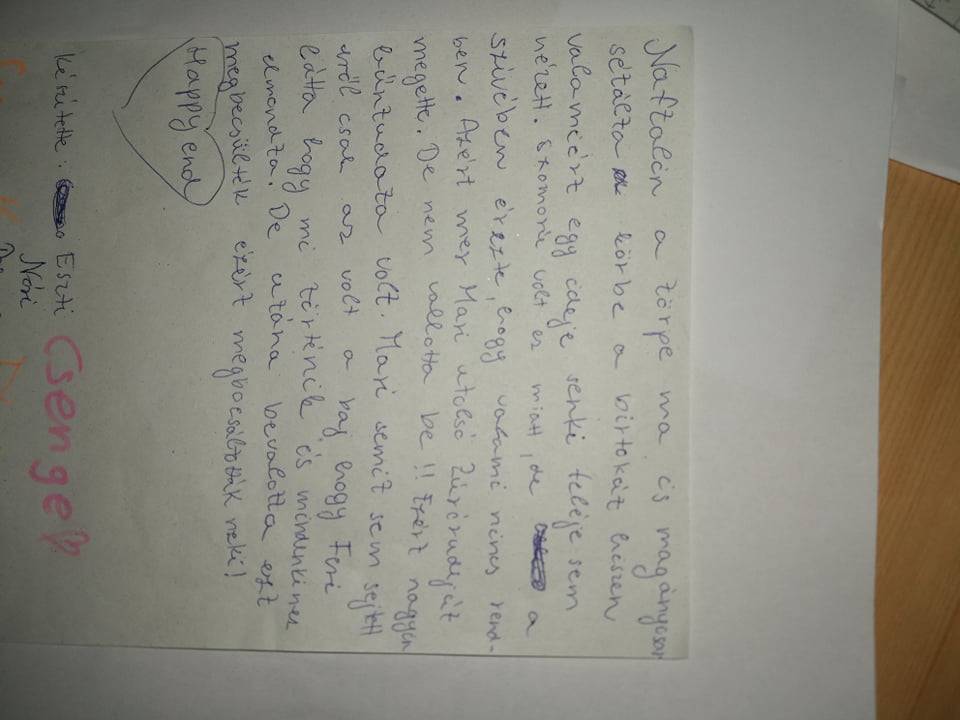 Naftalin a törpe ma is magányosan
sétálta körbe a birtokát hiszen
valamiért egy ideje senki feléje sem
nézett. Szomorú volt ez miatt, de a
szívében érezte, hogy valami nincs rend-
ben. Azért mer Mari utolsó Túrórudiját
megette. De nem vallotta be!! Ezért nagyon
bűntudata volt. Mari semit sem sejtett
erről csak az volt a baj hogy Feri
látta hogy mi történik és mindenkinek
elmondta. De utána bevalotta ezt
megbecsülték ezért megbocsátották neki!
Happy end
Készítette: Eszti
Nóri
Csenge